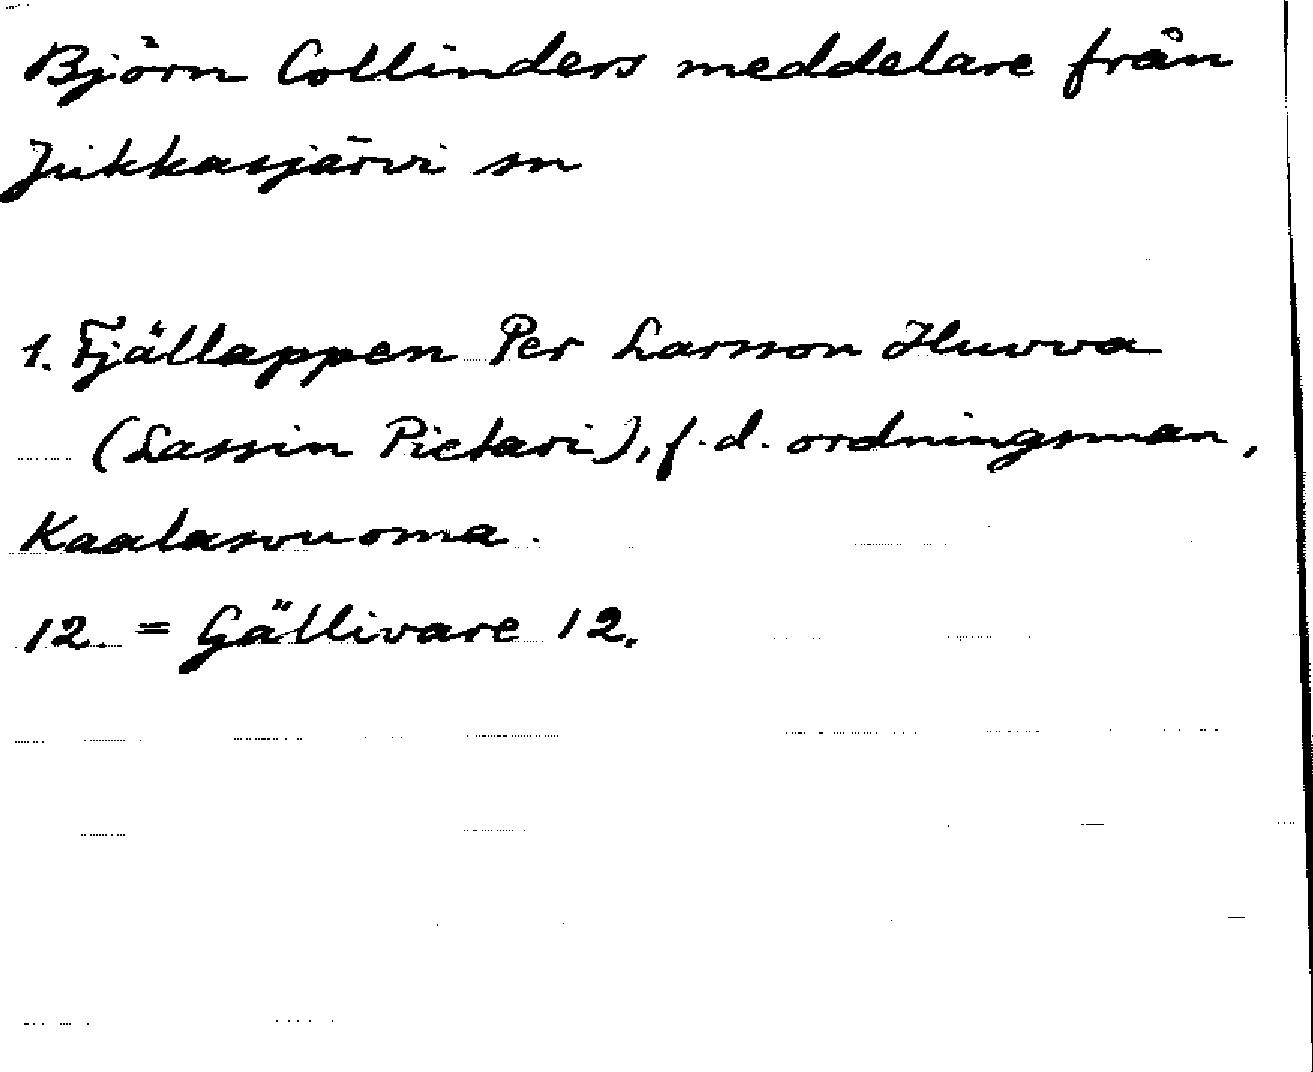 Björn Collinders meddelare från
Jukkasjärvi sn
1. Fjällappen Per Larsson Huvva
(Lassin Pietari), f.d. ordningsman,
Kaalasvuoma.
12. = Gällivare 12.